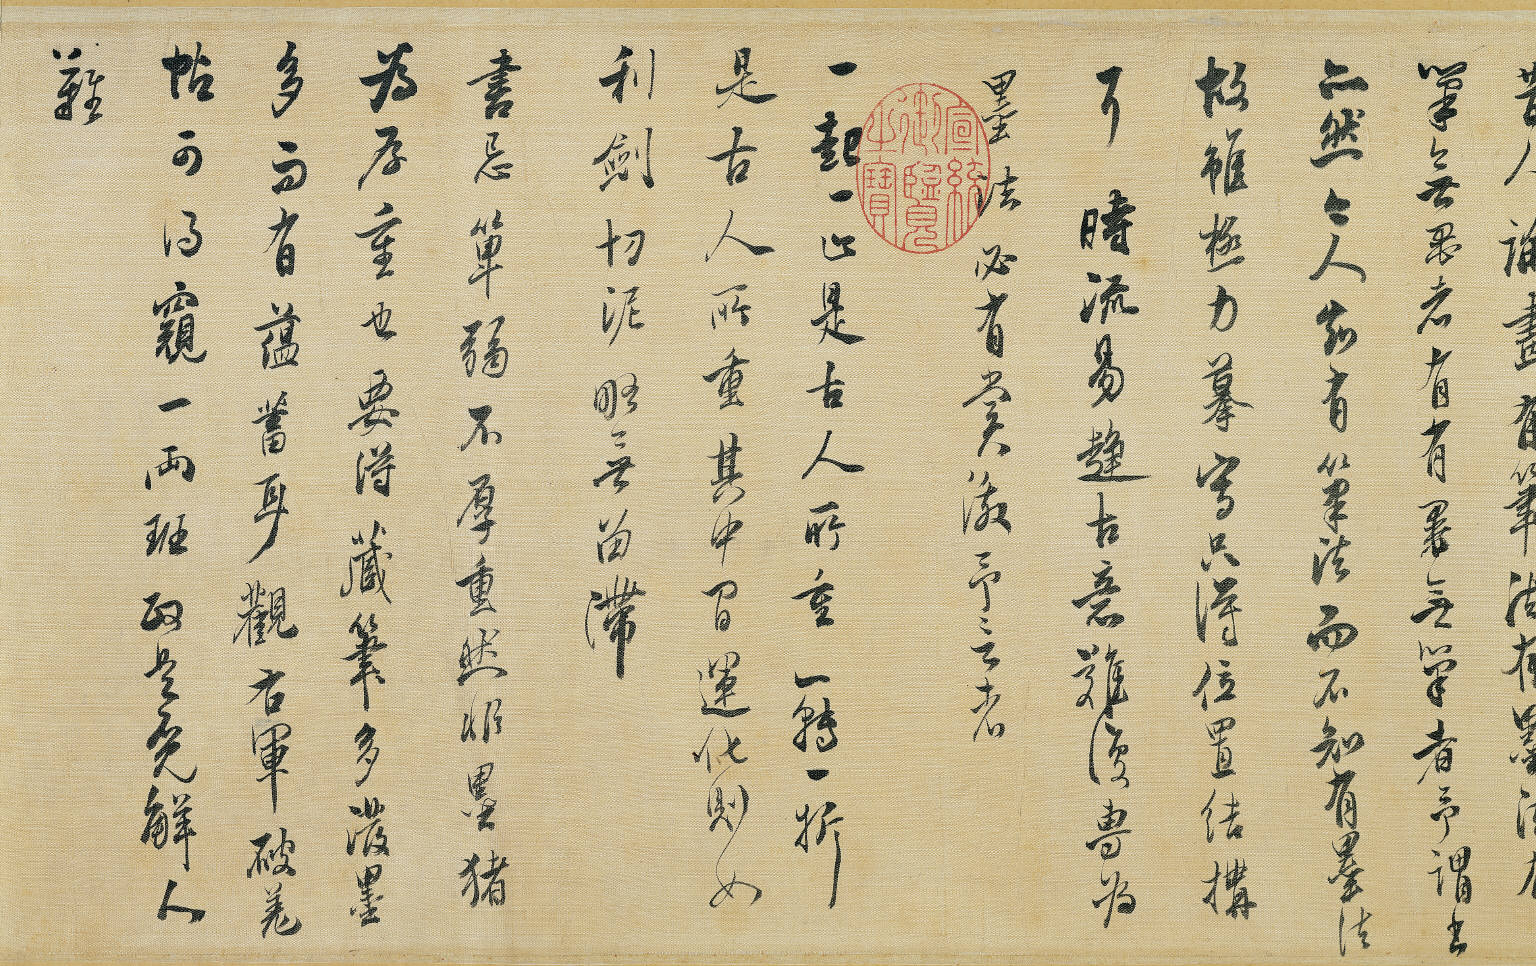 昔人論畫有筆法有墨法有
筆無墨者有有墨無筆者予謂書
亦然今人知有筆法而不知有墨法
故雖極力摹寫只得位置結構
耳 時流易趨古意難復專為
墨法必有賞激予言者
一起一止是古人所重一轉一折
是古人所重其中間運化則如
利劍切泥略無留滯
書忌單弱不厚重然非墨猪
為厚重也要得藏筆多濃墨
多而有蘊蓄耳觀右軍破羌
帖可得窺一兩班政是索解人
難
宣統御覽之寶